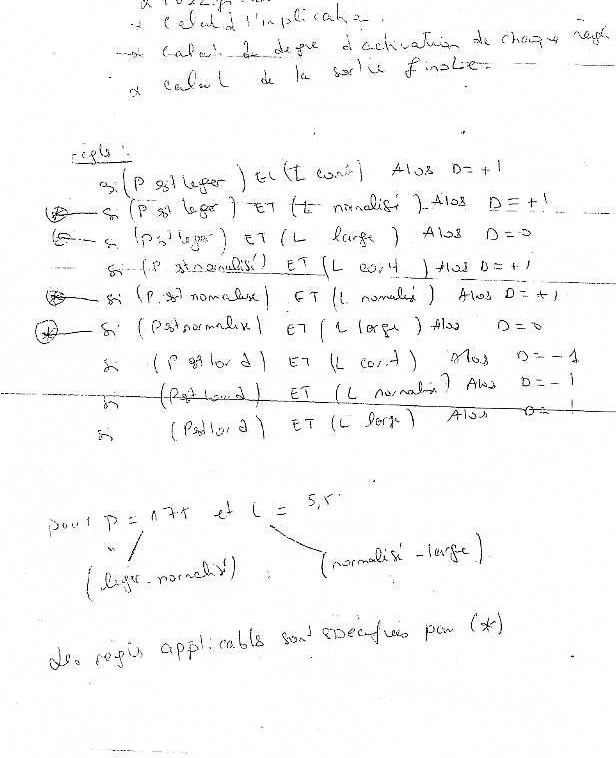 * calcul d l'implication.
→ calcul de degre d'activation de chaque regl
* calcul de la sortie finale.
regls :
si (P est leger) Et (L court) Alos D = +1
* si (P est leger) ET (L normalisé) Alos D = +1
* si (P est leger) ET (L large) Alos D = 0
si (P st normalisé) ET (L court) Alos D = +1
* si (P. st normalise) ET (L normalisé) Alos D = +1
* si (P st normalise) ET (L large) Alos D = 0
si (P st lord) ET (L court) Alos D = -1
si (P st lourd) ET (L normalisé) Alos D = -1
si (P st lord) ET (L large) Alos D =
pour P = 175 et L = 5,5.
(liger-normalisé) (normalisé-large).
les regls applicabls sont specifiees par (*)